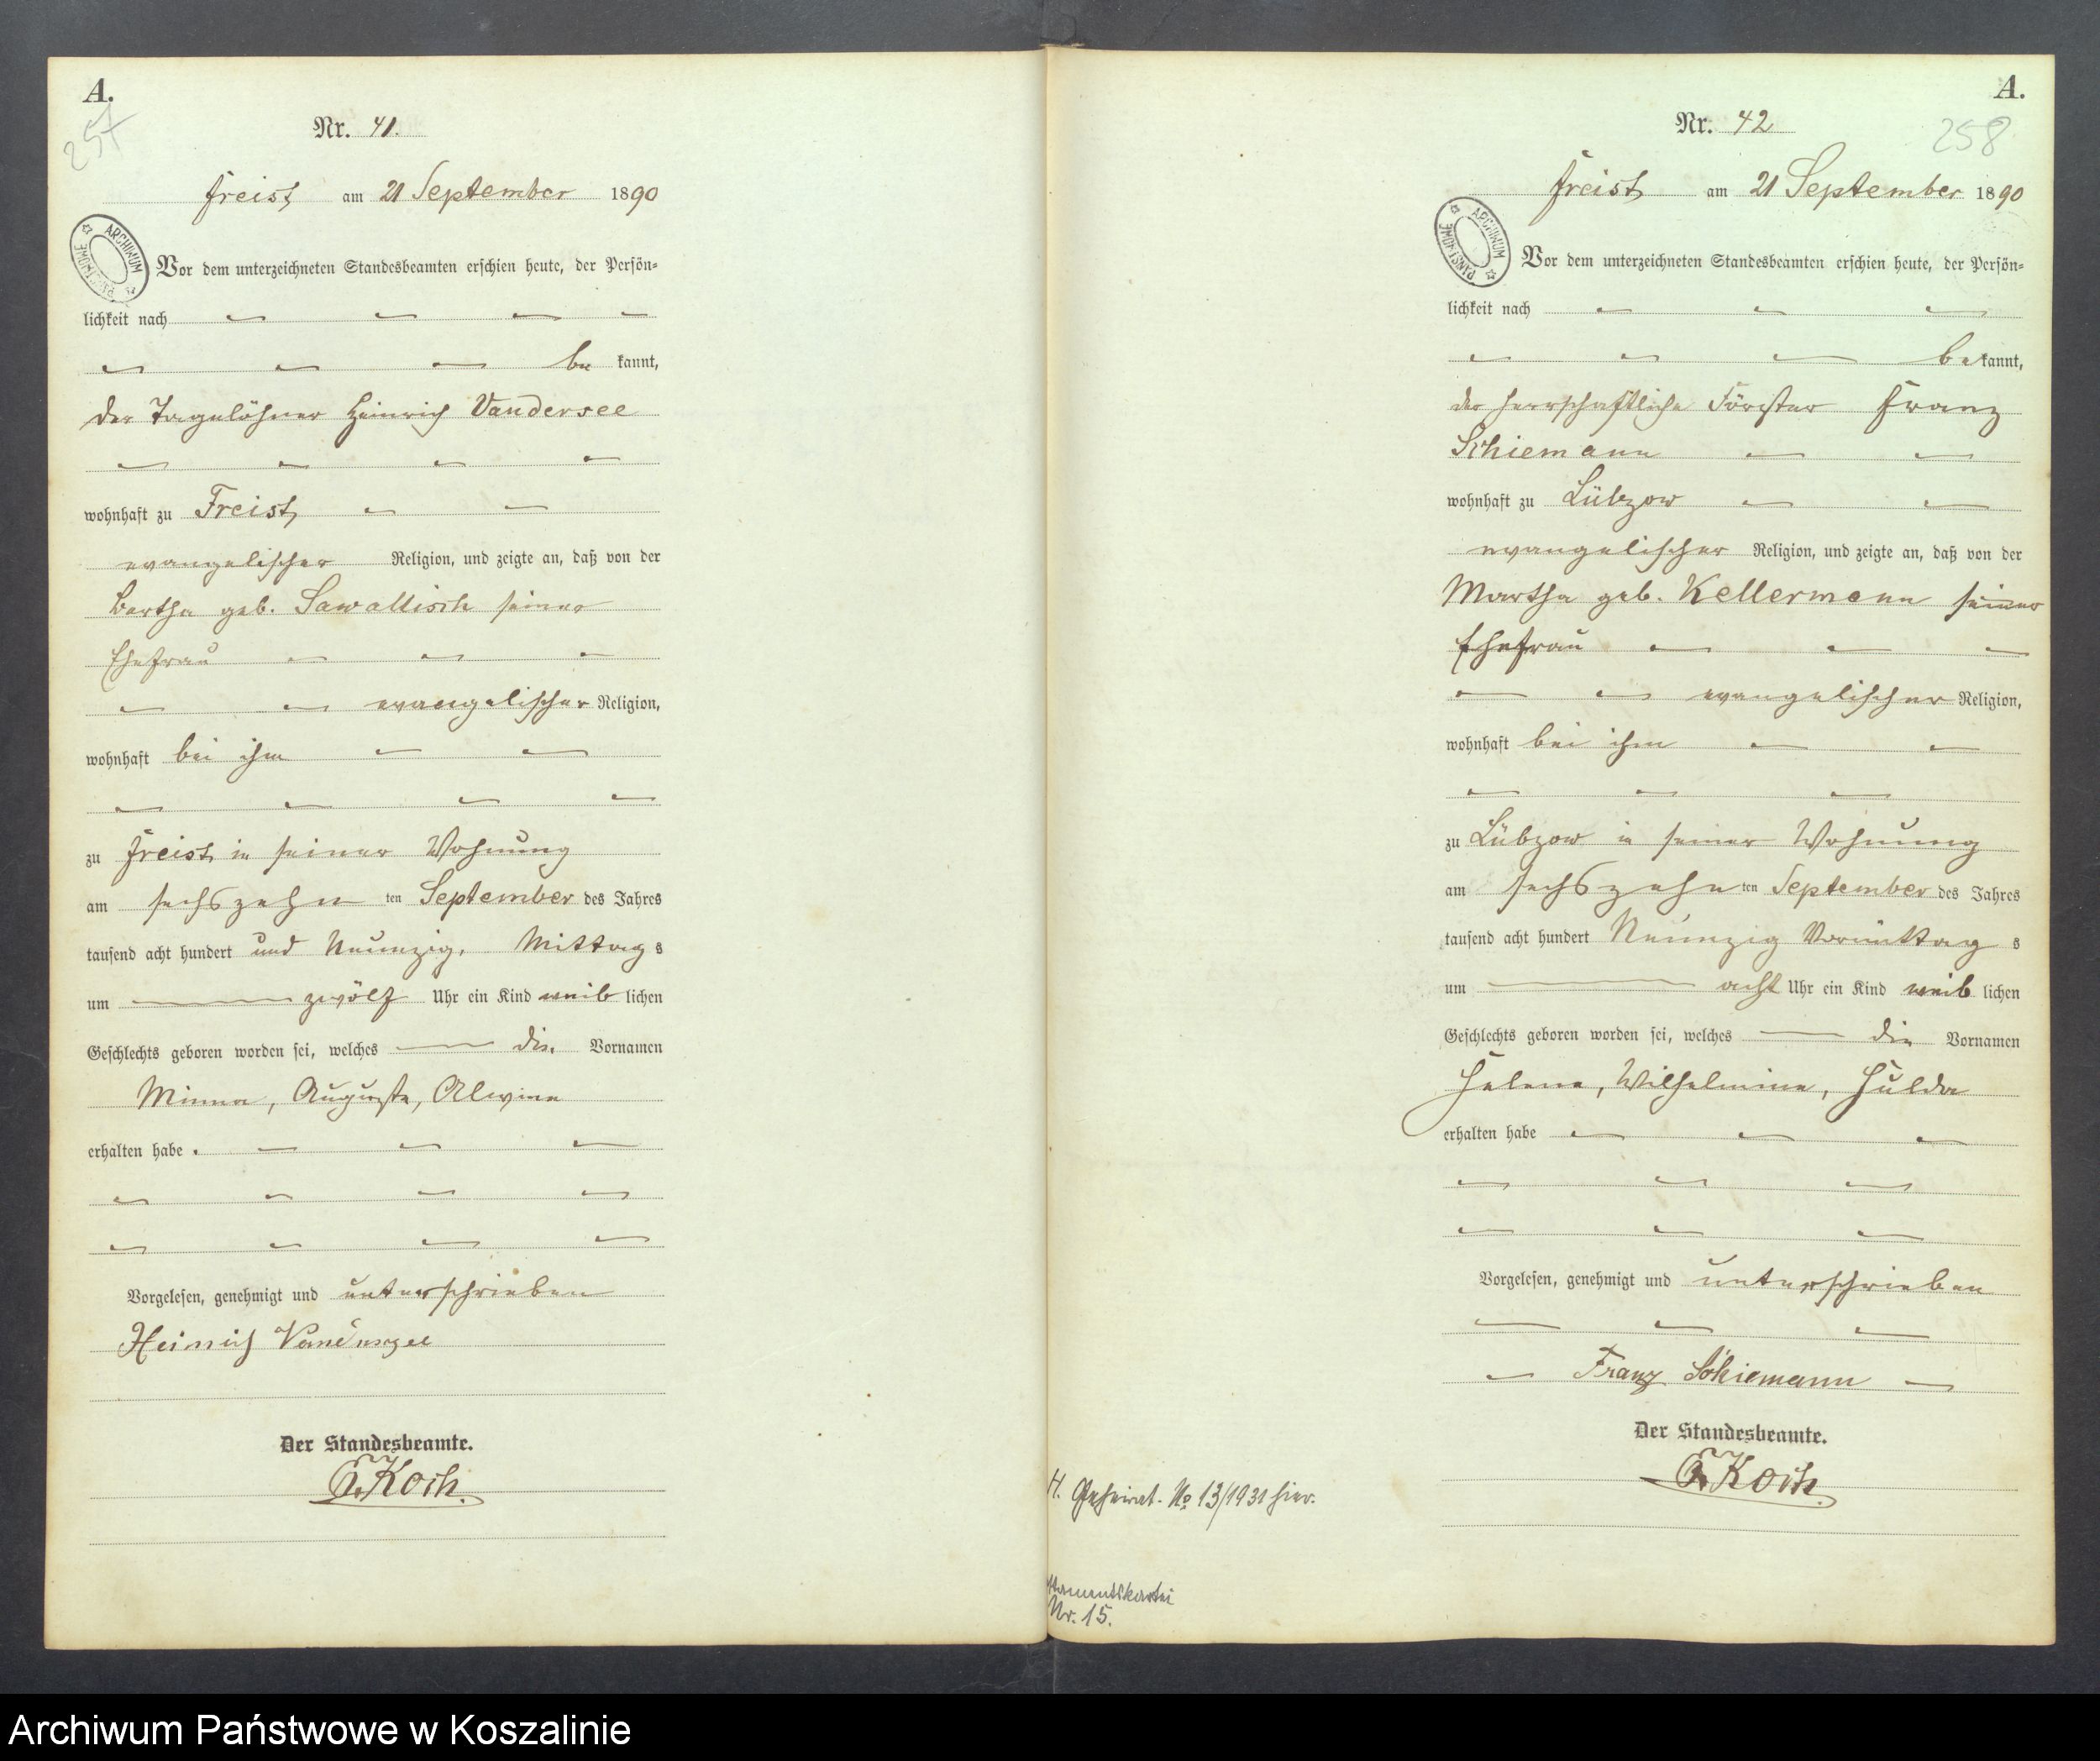 A.
257
Nr. 41.
Freist am 21 September 1890
ARCHIWUM PAŃSTWOWE
Vor dem unterzeichneten Standesbeamten erschien heute, der Persön=
lichkeit nach
be kannt,
der Tagelöhner Heinrich Vandersee
wohnhaft zu Freist
evangelischer Religion, und zeigte an, daß von der
Bertha geb. Sawallisch seiner
Ehefrau
evangelischer Religion,
wohnhaft bei ihm
zu Freist in seiner Wohnung
am sechszehn ten September des Jahres
tausend acht hundert und Neunzig, Mittag s
um zwölf Uhr ein Kind weib lichen
Geschlechts geboren worden sei, welches die Vornamen
Minna, Auguste, Alwine
erhalten habe.
Vorgelesen, genehmigt und unterschrieben
Heinrich
Der Standesbeamte.
Koch.
A.
258
Nr. 42
Freist am 21 September 1890
ARCHIWUM PAŃSTWOWE
Vor dem unterzeichneten Standesbeamten erschien heute, der Persön=
lichkeit nach
be kannt,
der herrschaftliche Förster Franz
Schiemann
wohnhaft zu Lübzow
evangelischer Religion, und zeigte an, daß von der
Martha geb. Kellermann seiner
Ehefrau
evangelischer Religion,
wohnhaft bei ihm
zu Lübzow in seiner Wohnung
am sechszehn ten September des Jahres
tausend acht hundert Neunzig Vormittag s
um acht Uhr ein Kind weib lichen
Geschlechts geboren worden sei, welches die Vornamen
Helene, Wilhelmine, Hulda
erhalten habe
Vorgelesen, genehmigt und unterschrieben
Franz Schiemann
Der Standesbeamte.
Koch.
H. Geheirat. No 13/1931 hier.
Nr. 15.
Archiwum Państwowe w Koszalinie